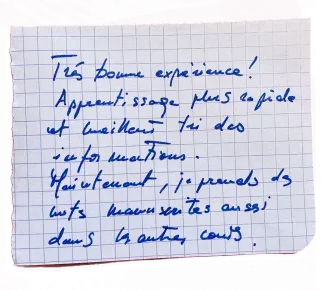 Très bonne expérience!
Apprentissage plus rapide
et meilleur tri des
informations.
Maintenant, je prends des
nots manuscrites aussi
dans les autres cours.